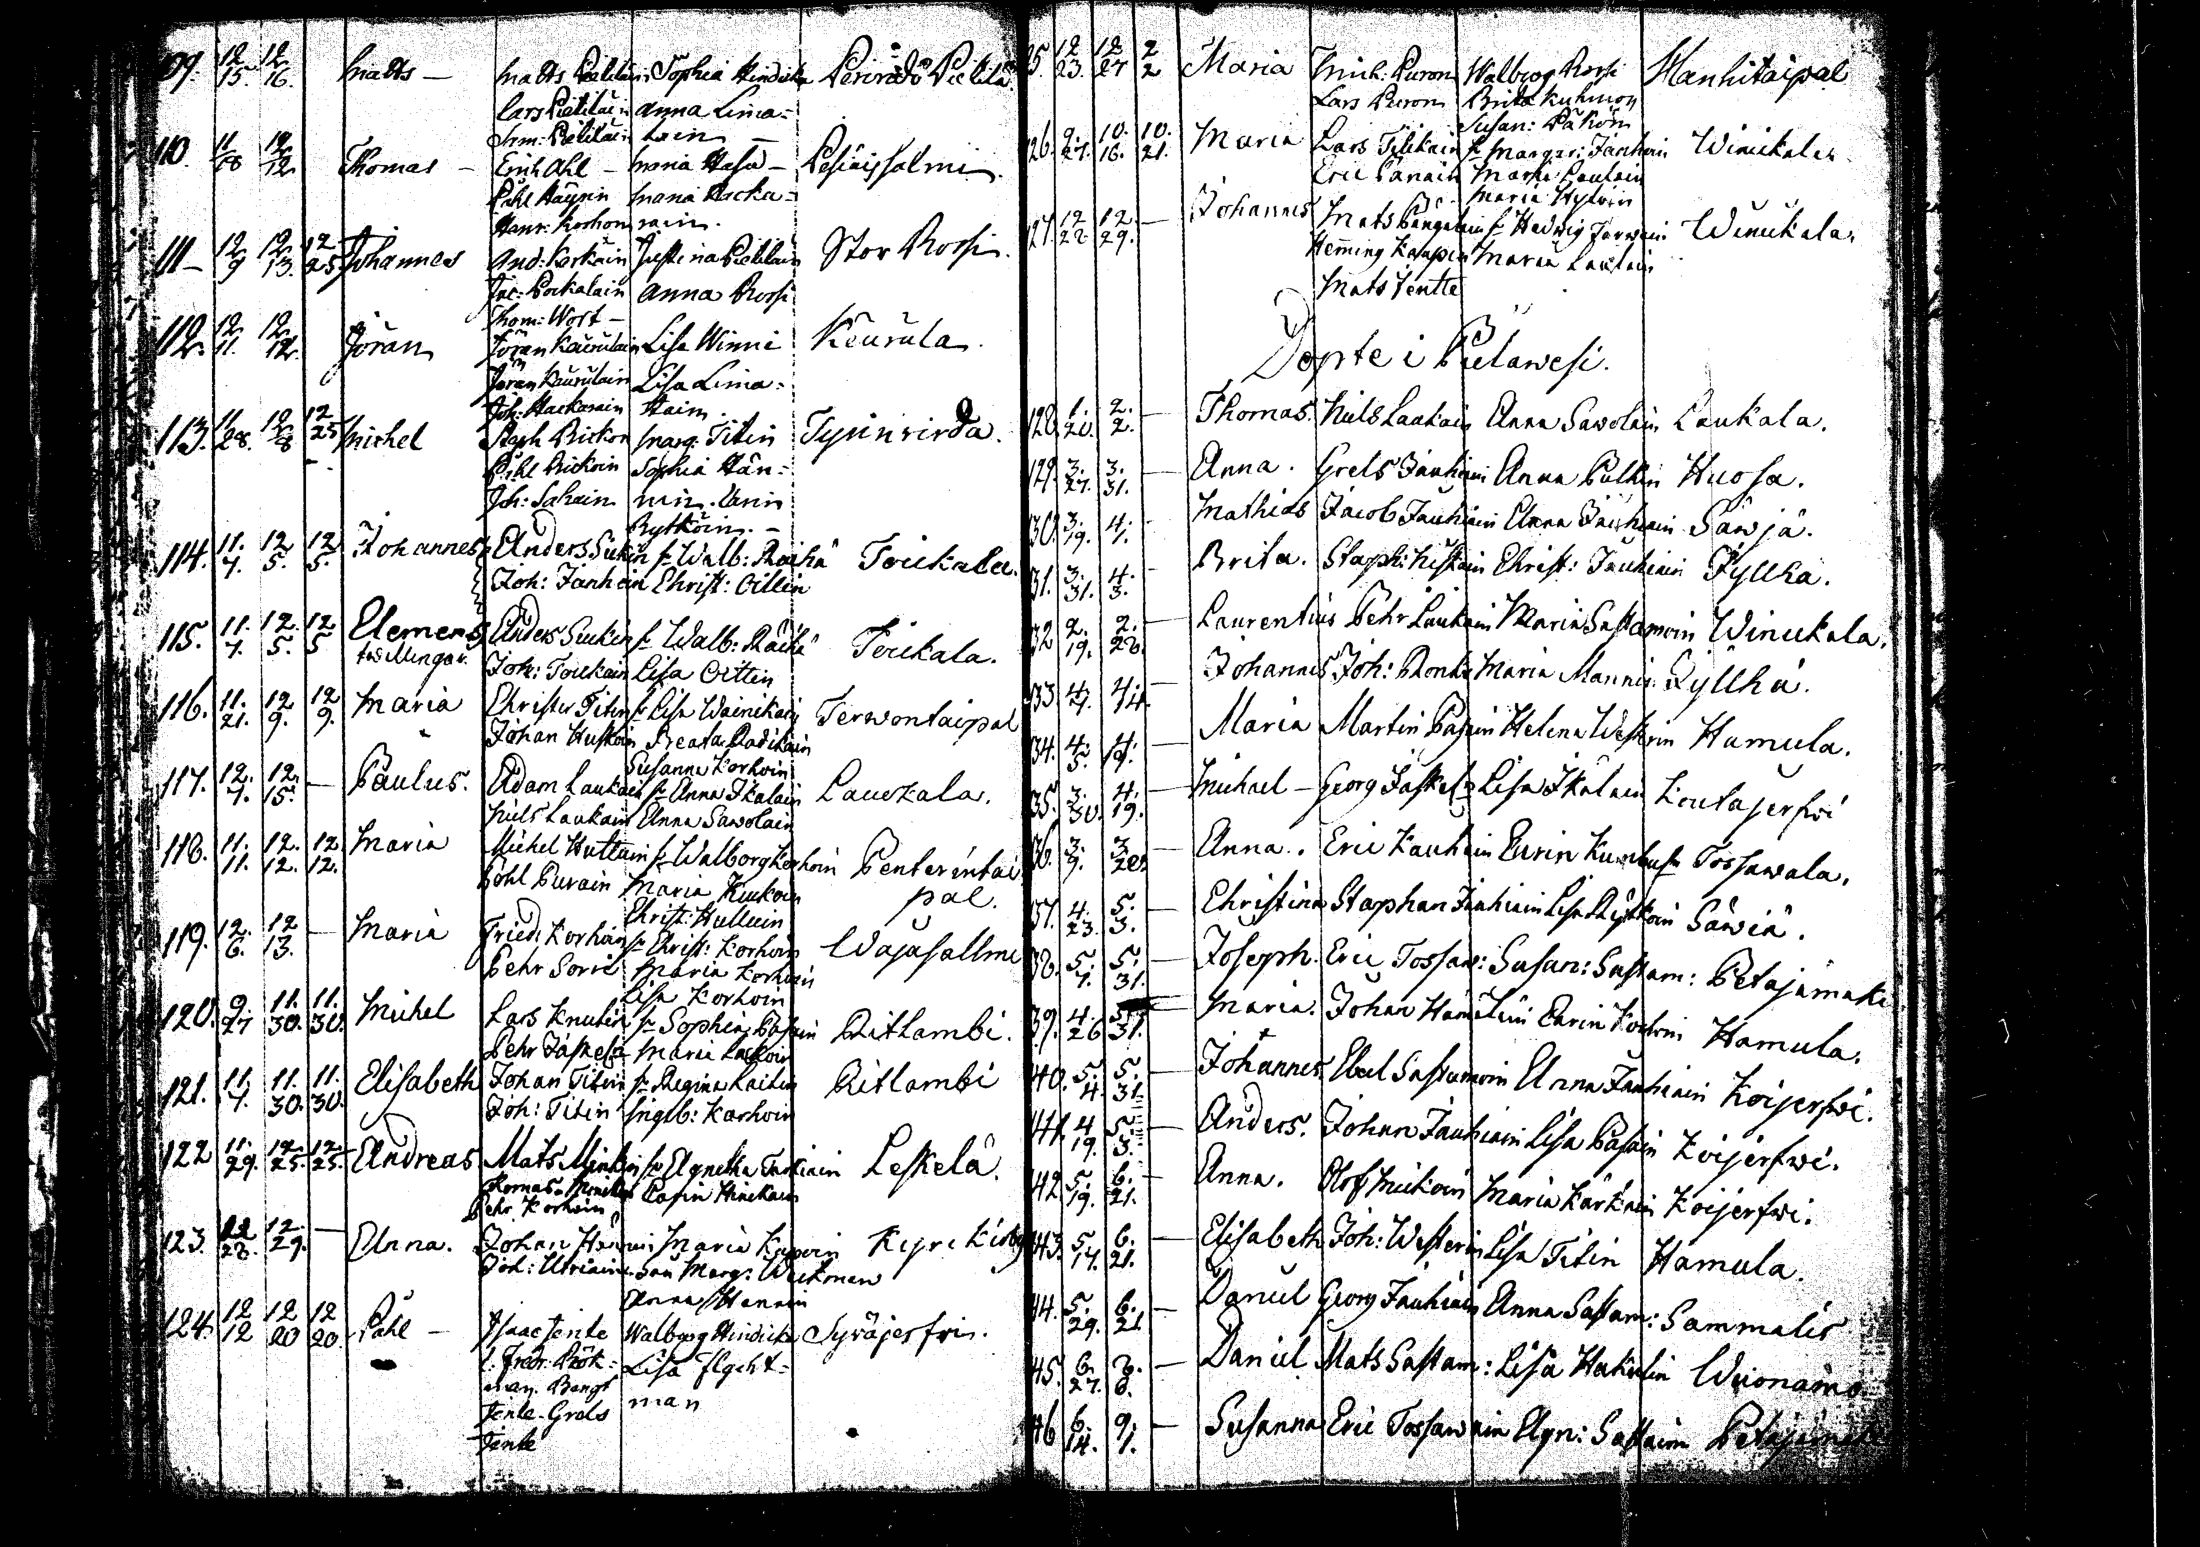 109. 12/15. 12/16. Matts — Matts Pietiläin Sophia Hindickа Perirådo Pielilä
Lars Pietiläin Anna Lima=
Sim: Pietiläin tain —
110. 11/28 12/12 Thomas — Erich Ahl — Maria Hasu — Pesiäissalmi.
Påhl Häyrin Maria Hacka=
Henr: Korhon rain.
111 — 12/9 12/13. 12/25 Johannes And: Kerkäin Justina Pietiläin Stor Rossi.
Jac: Pockalain Anna Rossi
Thom: Wost —
112. 12/11. 12/12. Jöran Jöran Kaurulain Lisa Winni Keurula.
Jöran Kaurulain Lisa Lima=
Joh: Hackarain tain.
113. 11/28. 12/8 12/25 Michel Staph Rickon Marg: Titin Tyrinvirda.
Påhl Rickoin Sophia Hän=
Joh: Sahain nin. Carin
Rytköin. —
114. 11./7. 12/5. 12/5. Johannes Anders Sickin fr Walb: Raihä Toickala.
Joh: Janhain Christ: Oittin
115. 11./7. 12./5. 12/5 Clemens Anders Sickin fr Walb: Raihä Toickala.
twillingar. Joh: Toickain Lisa Oittin
116. 11./21. 12/9. 12/9. Maria Christer Titin fr Lisa Wainikain Terwontaipal
Johan Huskoin Beata Radikain
Susanna Korhoin
117. 12./7. 12./15. — Paulus. Adam Laukain fr Anna Ikalain Lauckala.
Nils Laukain Anna Sawolain
118. 11./11. 12./12. 12./12. Maria Michel Huttuin fr Walborg Korhoin Penterintai
Påhl Purain Maria Kuukoin pal.
Christ: Hulluin
119. 12./6. 12/13. — Maria Fried: Korhoin fr Christ: Korhoin Wäjäsallmi
Pehr Sorri Maria Korhoin
Lisa Korhoin
120. 9/27 11./30. 11./30. Michel Lars Knutin fr Sophia Pasain Ritlambi.
Pehr Jäskeläi Maria Laskoin
121. 11./7. 11./30. 11./30. Elisabeth Johan Titin fr Regina Laitin Ritlambi
Joh: Titin Ingeb: Karhoin
122 11./29. 12./25. 12./25. Andreas Mats Minkin fr Agnetha Tarkiain Leskelä.
Thomas Minckin Carin Hinckain
Pehr Korhoin
123. 12/28. 12./29. — Anna. Johan Hännin Maria Kupoin Kyrckioby
Joh: Utriain Marg: Weckman
Anna Hännin
124. 12/12 12/20 12/20. Påhl — Isaac Jente Walborg Hindickа Syväjerfwi.
L: Fredr: Brök= Lisa Flycht=
man. Bengt man
Jente. Grels
Jente
25. 12/23. 12/27 2/2 Maria Mich: Puron Walborg Rossi Hanhitaipal
Lars Puron Brita Kuhmon
Susan: Päkön
126. 9./27. 10./16. 10./21. Maria Lars Tilikain fr Margar: Janhoin Winickala
Eric Pänäin Marg: Laulain
Maria Hytöin
127. 12/22 12/29. — Johannes Mats Pängälain fr Hedwig Jarwain Winickala.
Hemming Kasapin Maria Laulain
Mats Jentte
Döpte i Pielawesi.
128. 1./20. 2./2. — Thomas. Nils Laukain Anna Sawolain Laukala.
129. 3./27. 3./31. — Anna. Grels Jauhiain Anna Pulkin Huosa.
130. 3./19. 4./1. — Mathias Jacob Jauhiain Anna Jauhiain Säwjä.
31. 3./31. 4./3. — Brita. Staph: Niskain Christ: Jauhiain Jyllkä.
32 2./19. 2./28. — Laurentius Pehr Laukain Maria Sastamoin Winickala.
33 4/7. 4./14. — Johannes Joh: Ronka Maria Mannin Jyllkä.
34. 4./5. 4./19. — Maria Martin Pasain Helena Westerin Hamula.
35. 3./30. 4./19. — Michael — Georg Jäskel: Lisa Ikälain Koutajerfwi
36. 3./9. 3/28 — Anna. Eric Kauhain Carin Tossawala.
37. 4./23. 5./3. — Christina Staphan Jauhiain Lisa Rytkoin Säwiä.
38. 5./7. 5./31. — Joseph. Eric Tossaw: Susan: Sastam: Petajämaki
39. 4./26 5/31. — Maria. Johan Hämälain Carin Korhoin Hamula.
40. 5./4. 5./31. — Johannes. Abel Sastamoin Anna Jauhiain Koijerfwi.
41. 4/19. 5./3. — Anders. Johan Jauhiain Lisa Pasain Koijerfwi.
42. 5./19. 6./21. — Anna. Olof Mickoin Maria Kärkäin Koijerfwi.
43. 5./17. 6./21. — Elisabeth Joh: Westerin Lisa Titin Hamula.
44. 5./29. 6./21. — Daniel Georg Jauhiain Anna Sastam: Sammalis
45. 6./27. — Daniel Mats Sastam: Lisa Hakulin Wuonamo.
46 6./14. 9./1. — Susanna Eric Tossawain Agn: Sastaim Petajämak